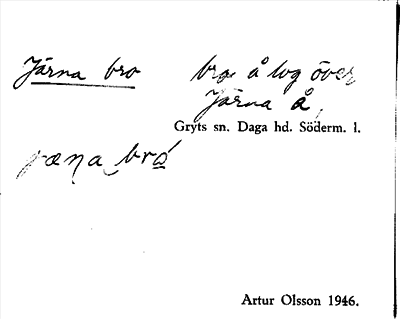 Järna bro bro å lvg över
Järna å,
Gryts sn. Daga hd. Söderm. l.
jæɳa bró
Artur Olsson 1946.